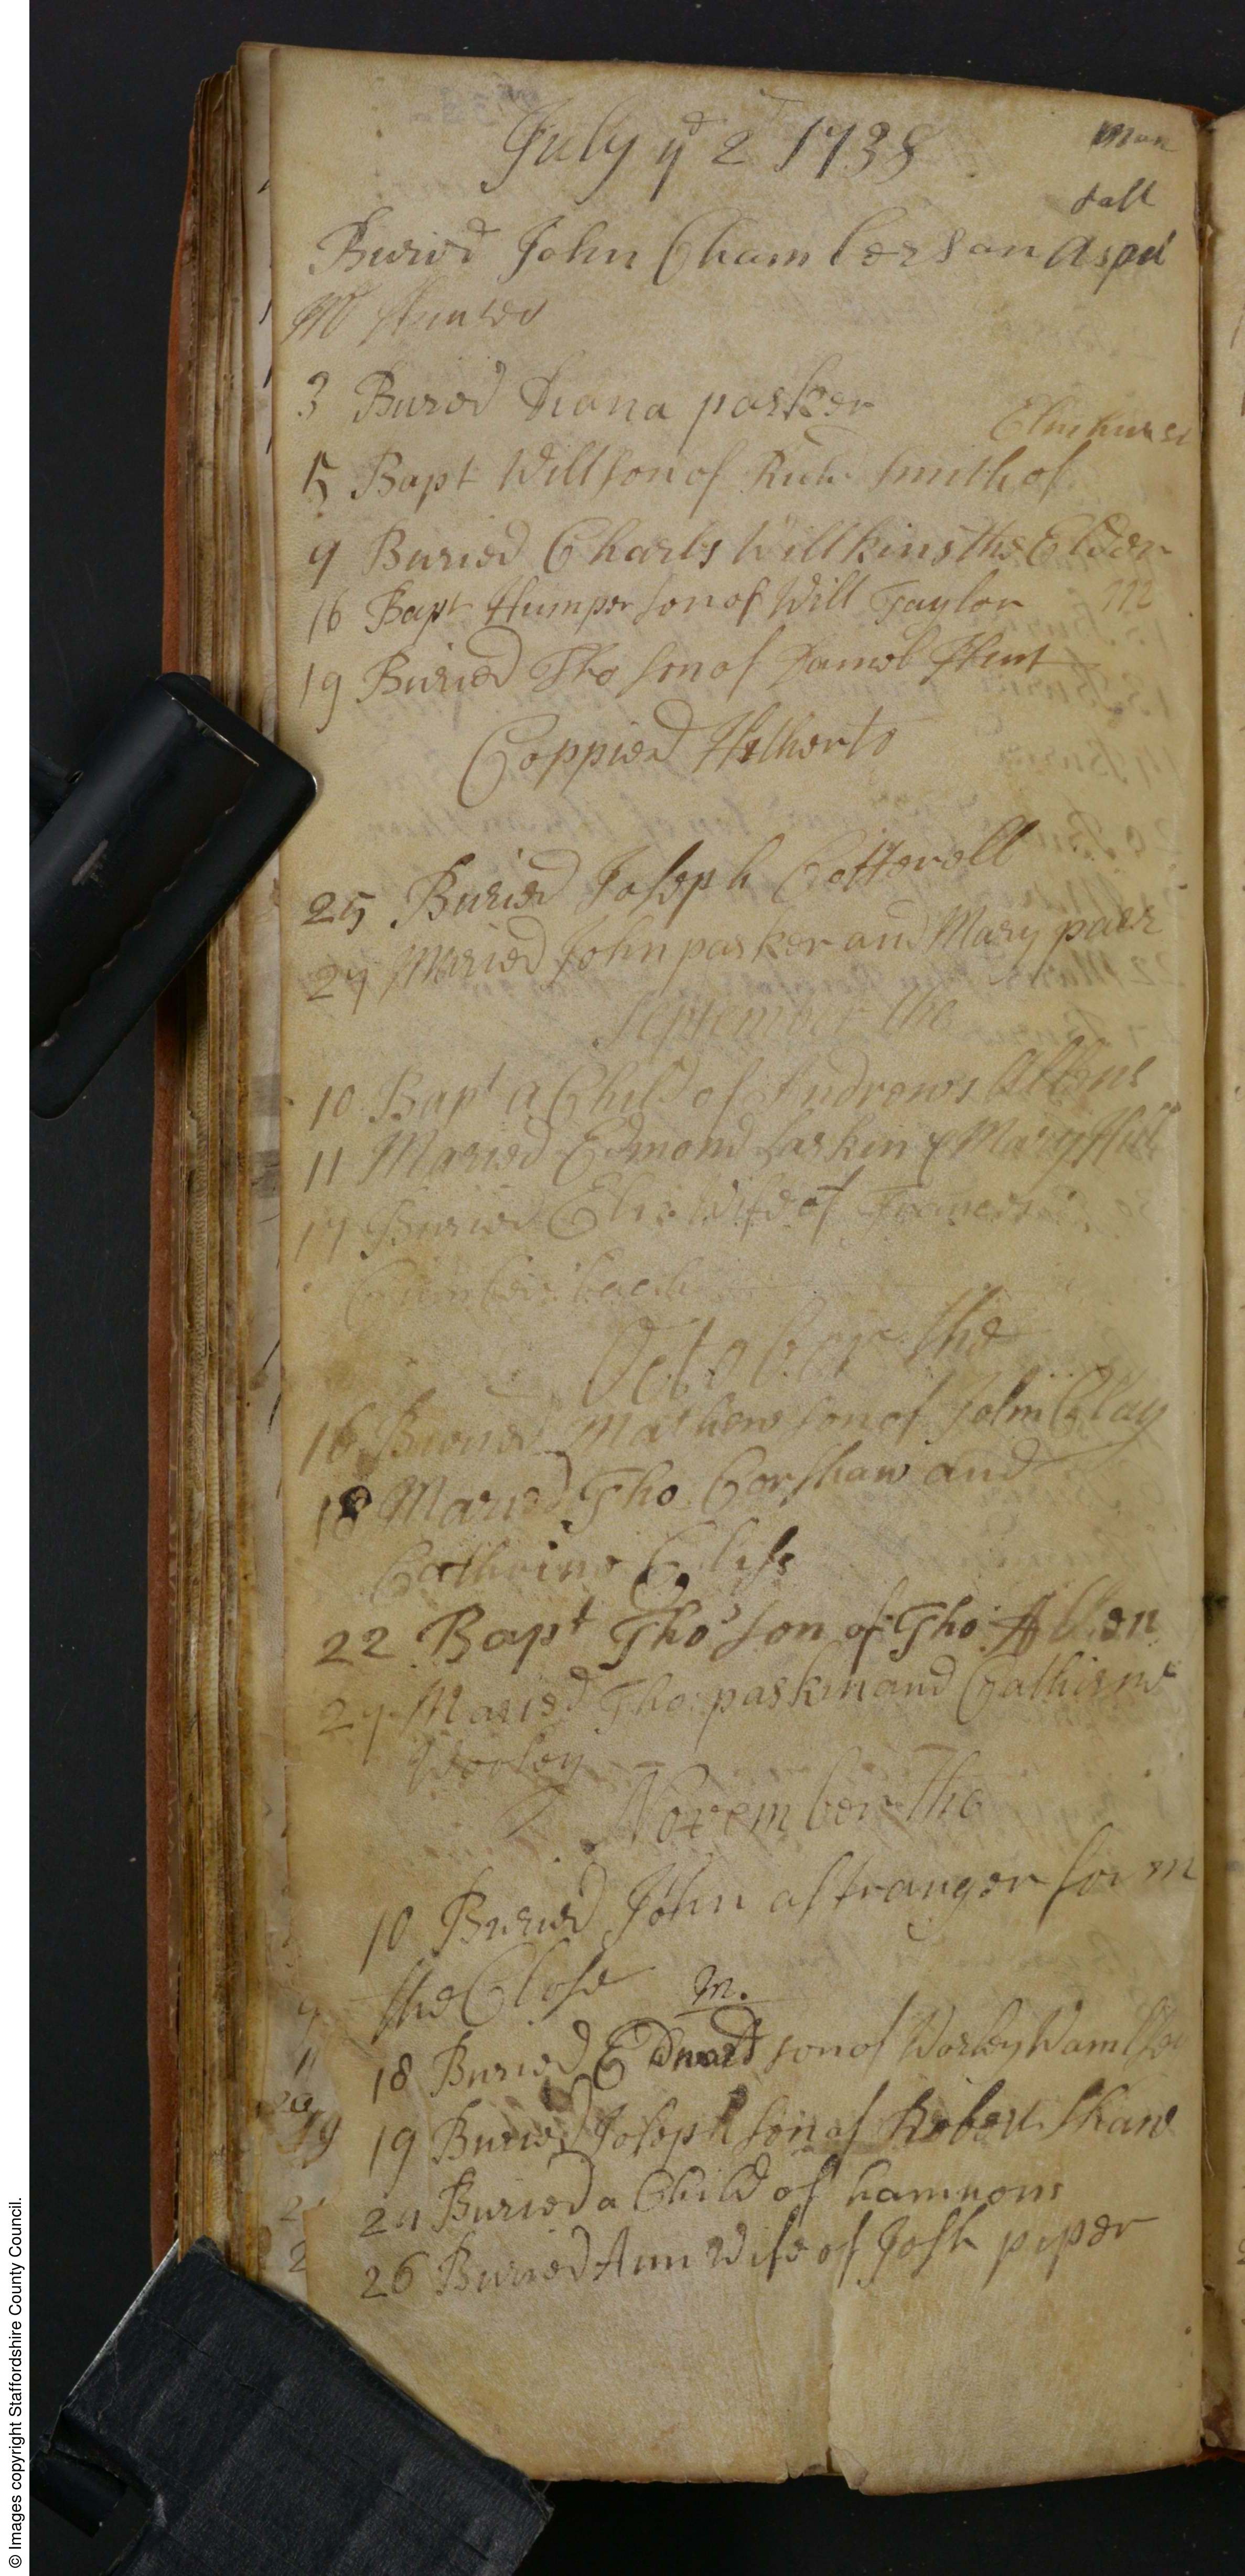 July yᵈ 2 1738
man
fall
Buried John Chamberson a
Mʳ
3 Bured Diana parker
Elmhurst
15 Bapt Will son of Rich. Smith of
9 Buried Charls Willkins the Elder
16 Bapt Humper son of Will Taylor
19 Buried Tho son of Samol Hunt
Coppied Hitherto
25 Buried Joseph Cotterell
27 Maried John parker and Mary
September the
10 Bapᵗ a Child of Andrews Allens
11 Maried Edmond Larkin & Mary
17 Buried Eliz. Wife of Frances
October the
16 Buried Mathew son of John Clay
18 Maried Tho. Corshaw and
Cathrine
22 Bapᵗ Thoˢ son of Tho Allen
27 Maried Tho: paskin and Cathirine
Worley
November the
10 Buried John a stranger form
the Close m.
18 Buried Edward son of Worley
19 Buried Joseph son of Robert Shaw
24 Buried a Child of hammons
26 Buried Ann Wife of Josh piper
© Images copyright Staffordshire County Council.